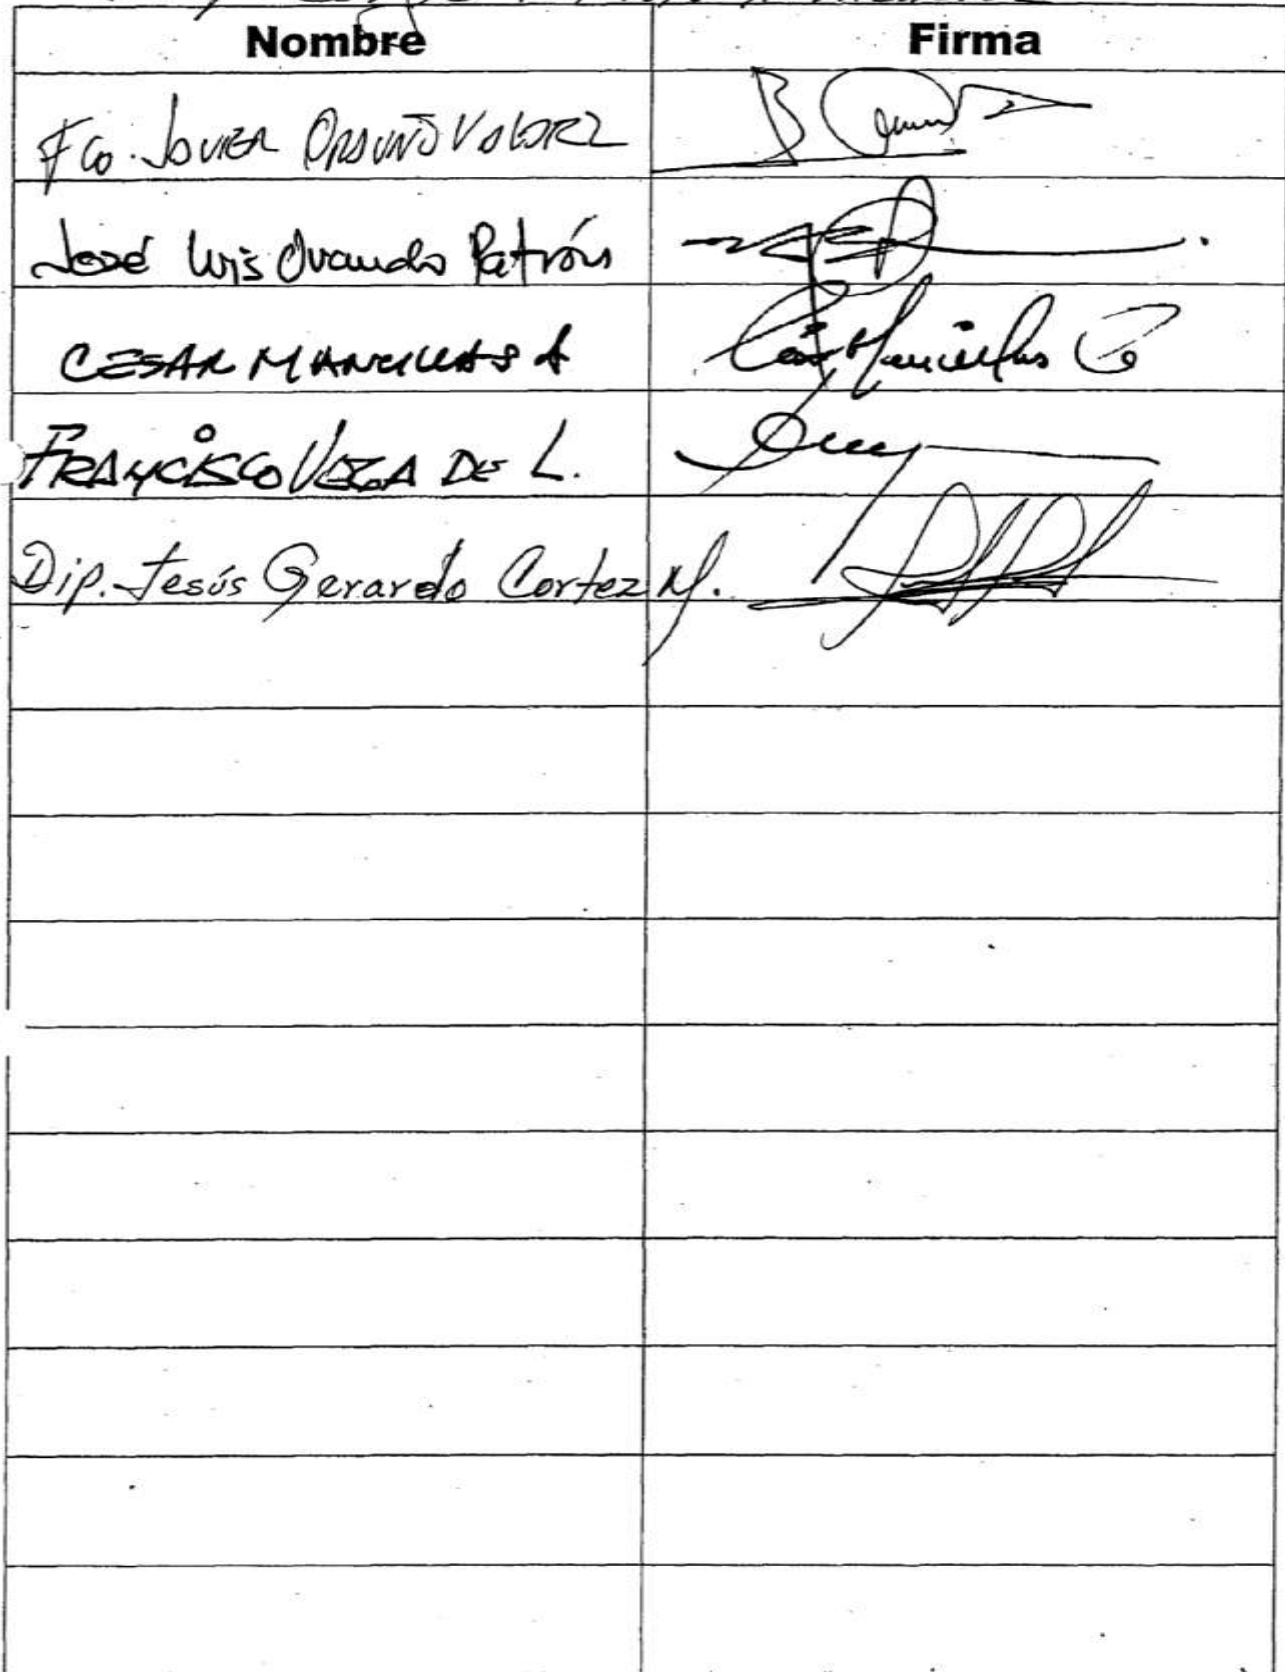 Nombre Firma
Fco. Javier Orduño Valdez
José Luis Ovando Patrón
CESAR MANCILLAS A
FRANCISCO VEGA DE L.
Dip. Jesús Gerardo Cortez M.